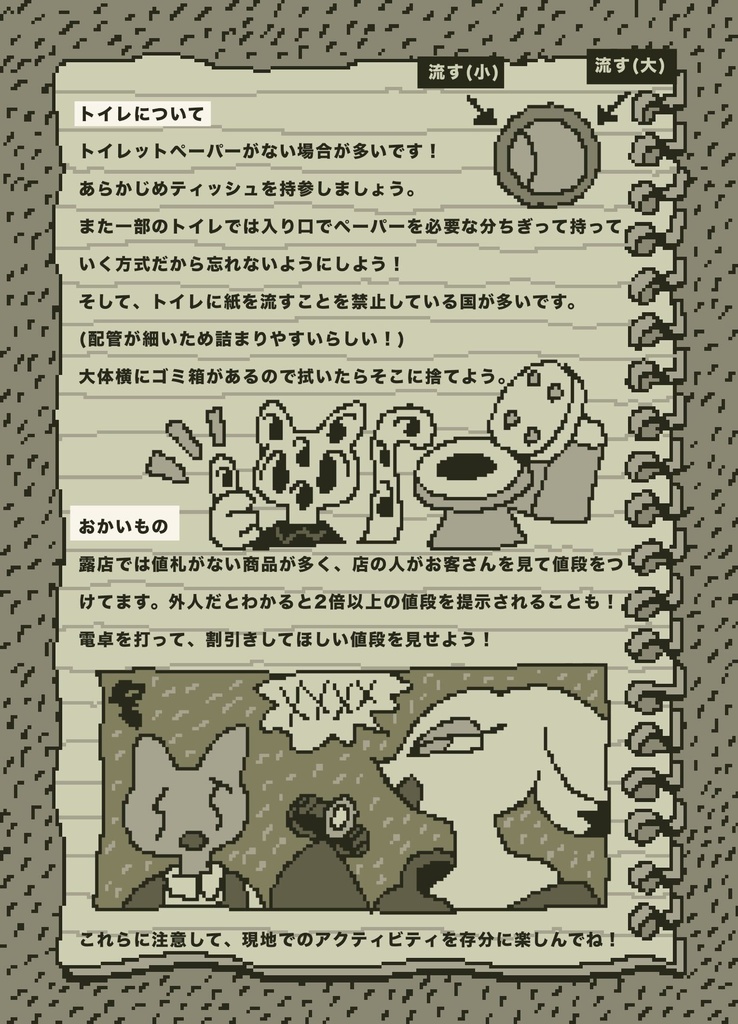 流す(小)
流す(大)
トイレについて
トイレットペーパーがない場合が多いです！
あらかじめティッシュを持参しましょう。
また一部のトイレでは入り口でペーパーを必要な分ちぎって持って
いく方式だから忘れないようにしよう！
そして、トイレに紙を流すことを禁止している国が多いです。
(配管が細いため詰まりやすいらしい！)
大体横にゴミ箱があるので拭いたらそこに捨てよう。
おかいもの
露店では値札がない商品が多く、店の人がお客さんを見て値段をつ
けてます。外人だとわかると2倍以上の値段を提示されることも！
電卓を打って、割引きしてほしい値段を見せよう！
XYXX
これらに注意して、現地でのアクティビティを存分に楽しんでね！